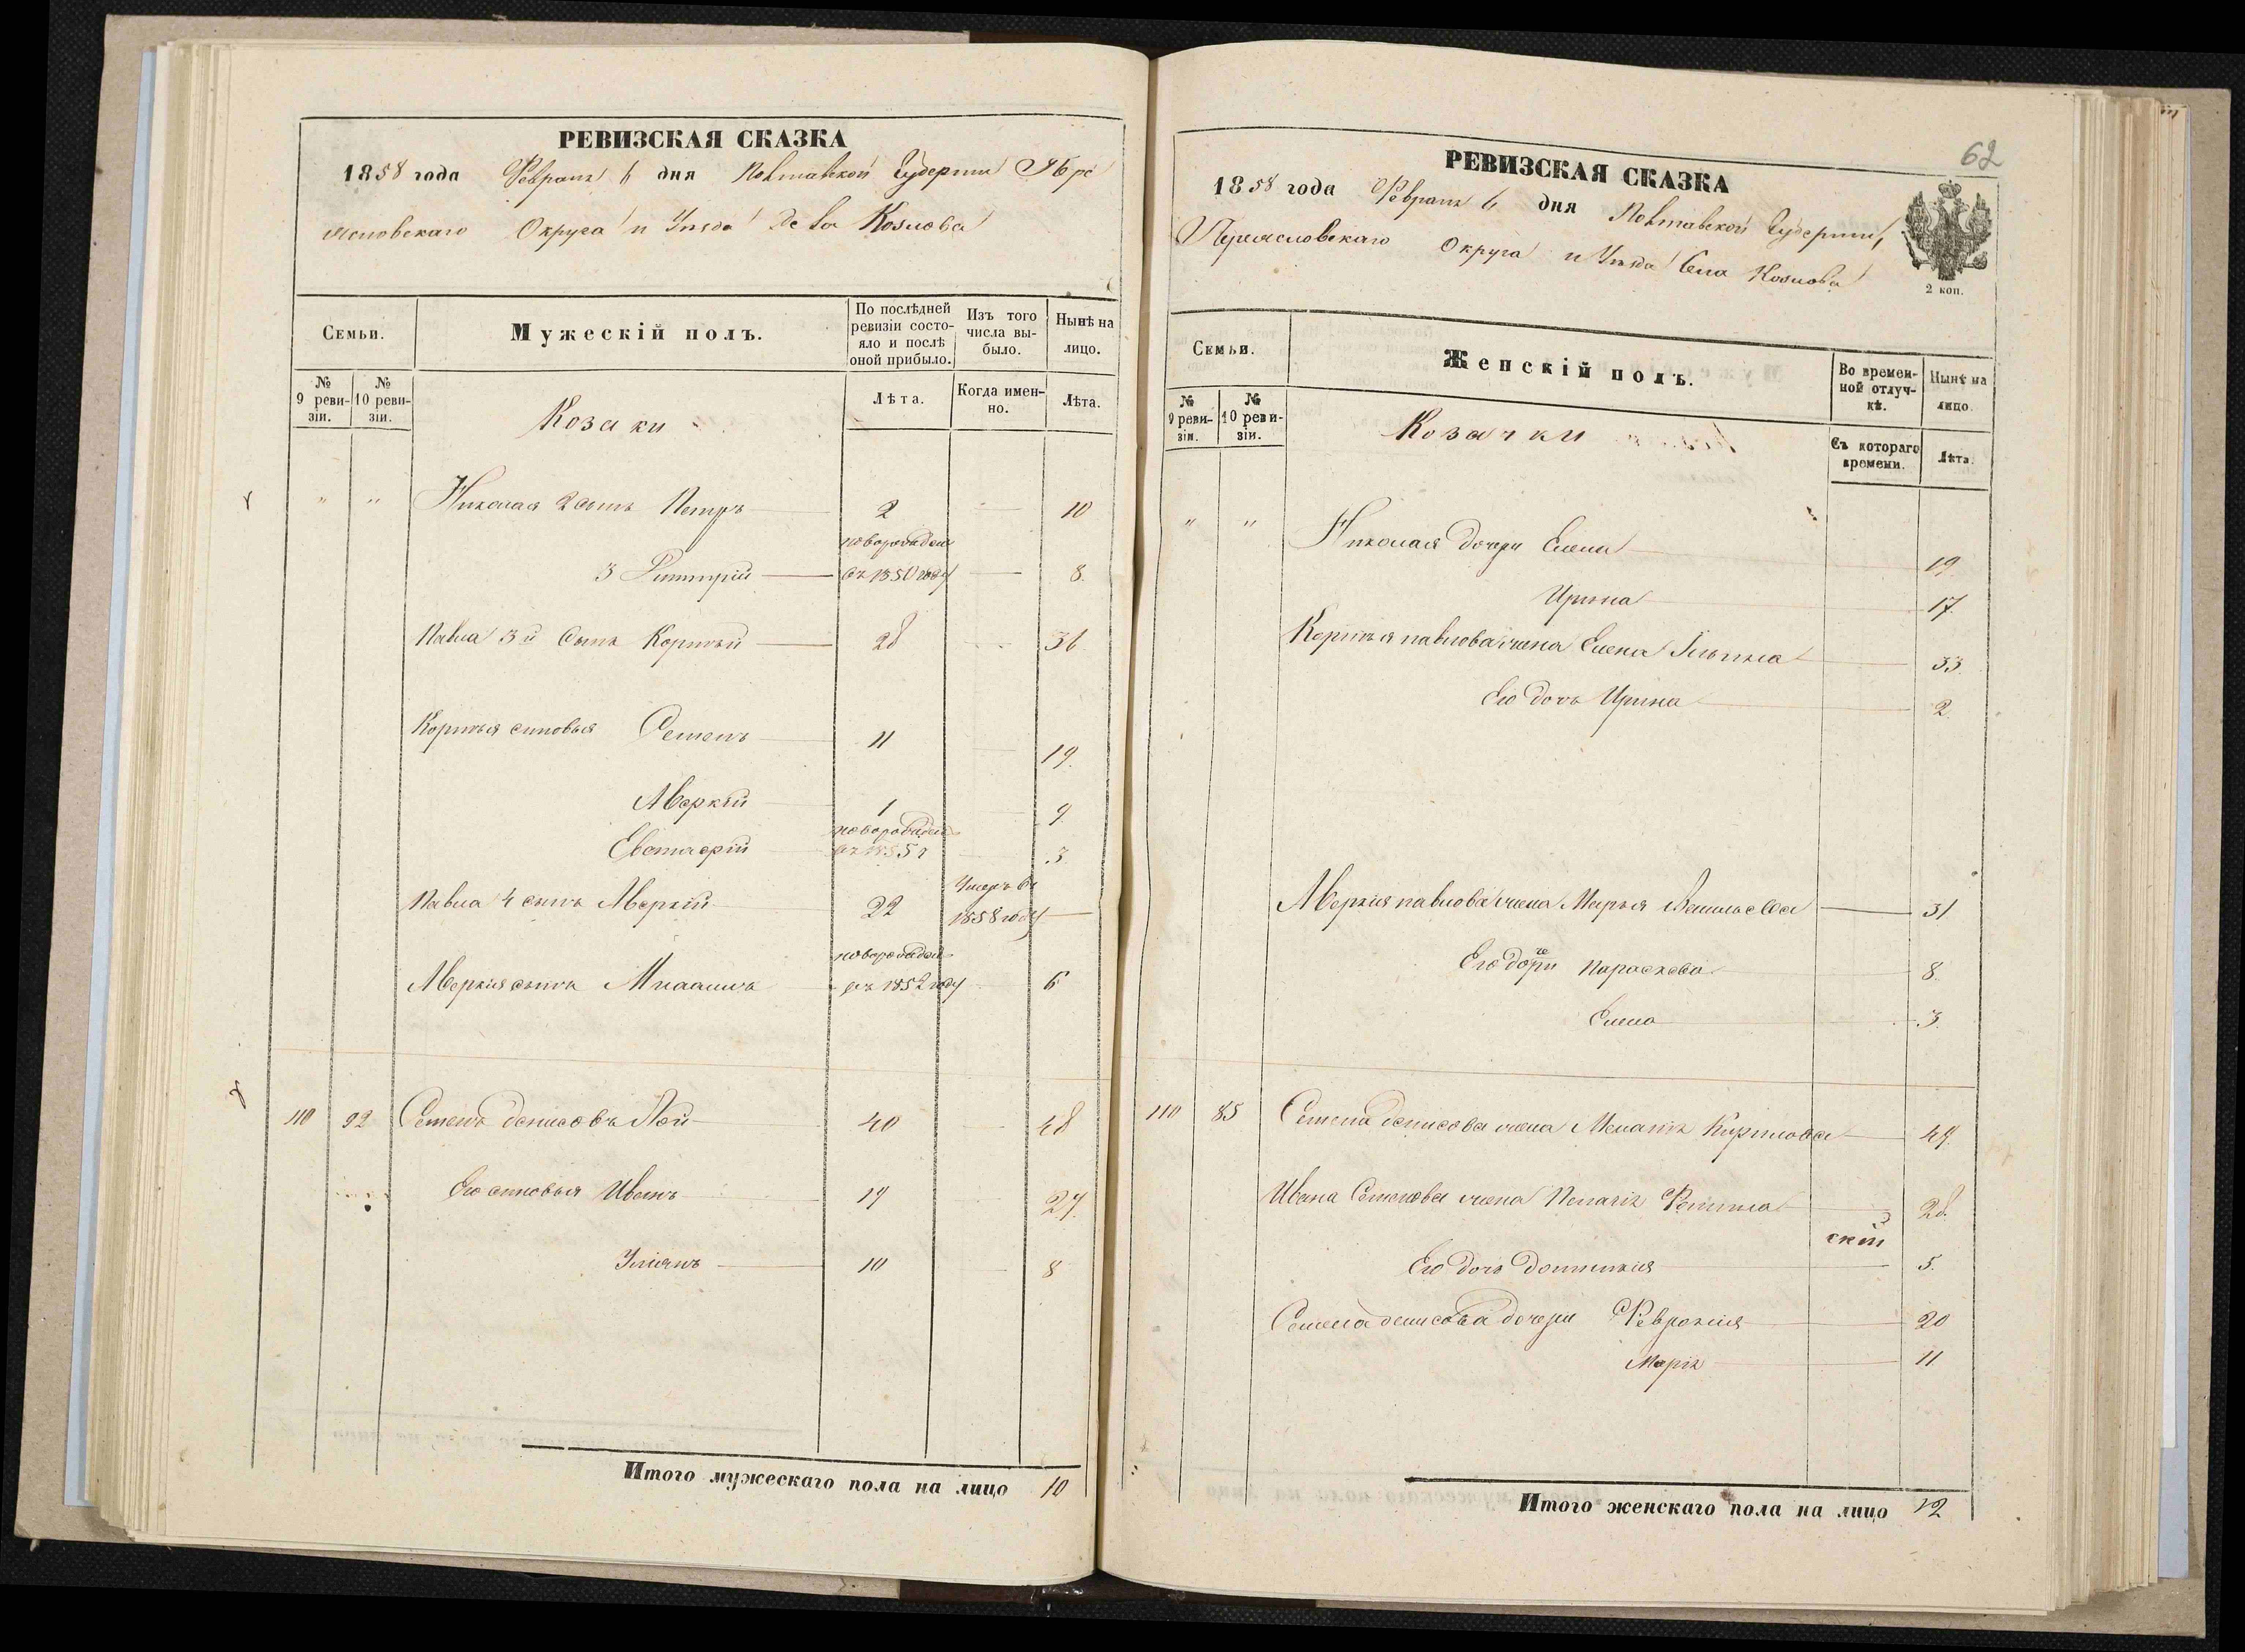 РЕВИЗСКАЯ СКАЗКА
1858 года Февраля 6 дня Полтавской Губернии Пере
ясловскаго Округа и Уезда Села Козлова
Семьи.
Мужескій полъ.
По послѣдней ревизіи состояло и послѣ оной прибыло.
Изъ того числа выбыло.
Нынѣ на лицо.
№ 9 ревизіи.
№ 10 ревизіи.
Козаки
Лѣта.
Когда именно.
Лѣта.
" " Николая 2 сынъ Петръ 2 10
новорожден
3 Димитрій въ 1850 году 8.
Павла 3й Сынъ Корнѣй 28 36
Корнѣя синовья Семенъ 11 19.
Аверкій 1 9
новорожден
Евстафій въ 1855 г 3.
Павла 4 сынъ Аверкій 22 Умеръ въ 1858 году
новорожден
Аверкія сынъ въ 1852 году 6
110 92 Семенъ Денисовъ 40 48
Его синовья Иванъ 19 27.
Уліянъ 10 8
Итого мужескаго пола на лицо 10
62
РЕВИЗСКАЯ СКАЗКА
1858 года Февраля 6 дня Полтавской Губернии,
Переясловскаго Округа и Уезда Села Козлова
2 коп.
Семьи.
Женскій полъ.
Во временной отлучкѣ.
Нынѣ на лицо.
№ 9 ревизіи.
№ 10 ревизіи.
Козачки
Съ котораго времени.
Лѣта.
" " Николая дочери Елена 19.
Ирина 17.
Корнѣя павлова жена Елена 33.
Его дочь Ирина 2.
Аверкія павлова жена Марья Васильева 31
Его дочери Параскева 8.
Елена 3.
110 85 Семена денисова жена Меланія Кирилова 49.
Ивана Семенова жена Пелагія 28.
Его дочь Домникія 5.
Семена денисова дочери Февронія 20
Марія 11
Итого женскаго пола на лицо 12